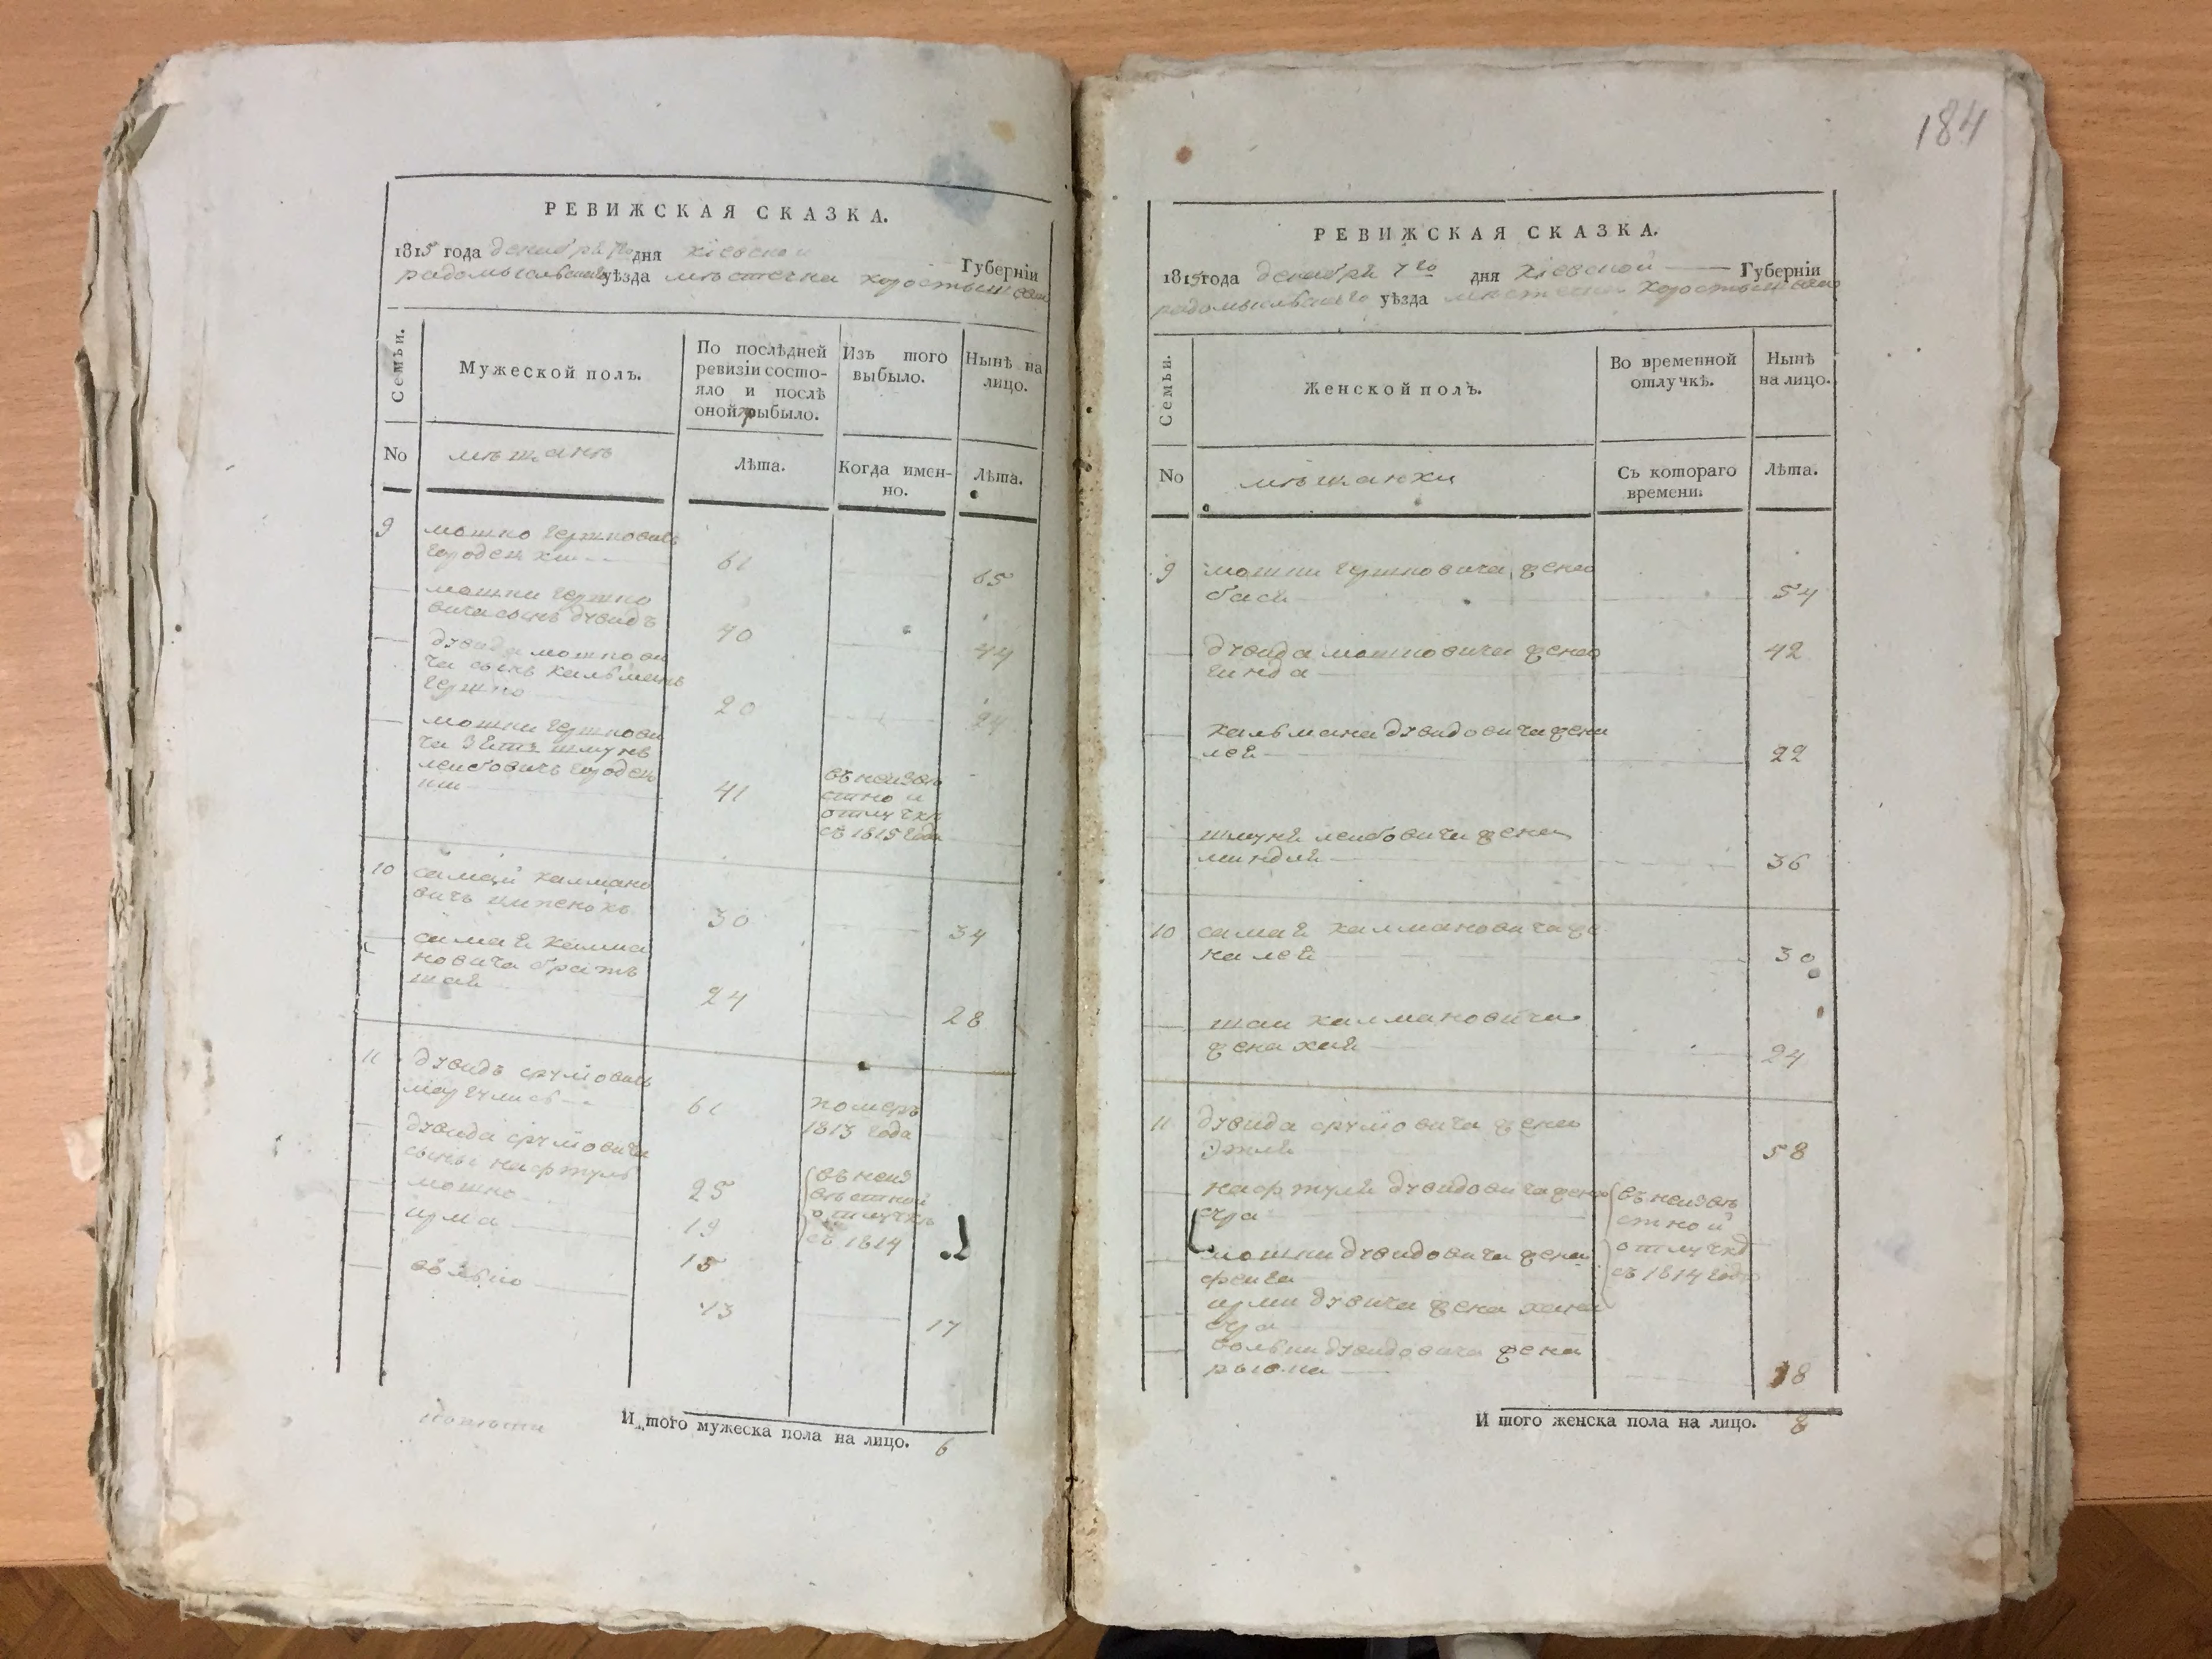 РЕВИЖСКАЯ СКАЗКА.
1815 года декабря 7го дня Кіевской Губерніи
радомысльского уѣзда мѣстечка Коростышева
Семьи.
Мужеской полъ.
По послѣдней ревизіи состояло и послѣ оной прибыло.
Изъ того выбыло.
Нынѣ на лицо.
No
мѣщанъ
Лѣта.
Когда именно.
Лѣта.
9 мошко гершковичь
городецкий 61 65
мошки гершко
вича сынъ дувидъ 40 44
дувида мошкови
ча сынъ кальманъ
гершко 20 24
мошки гершкови
ча зять шмуль
лейбовичь городец
кий 41
въ неизве
стной
отлучке
съ 1815 года
10 самай калмано
вичь 30 34
самая калма
новича братъ
шая 24 28
11 дувидъ срулiовичь
маргулисъ 61 померъ
1813 года
дувида срулiовича
сыны нафтуль 25
мошко 19
ирма 15
въ неиз
вестной
отлучке
съ 1814
волько 13 17
И того мужеска пола на лицо. 6
184
РЕВИЖСКАЯ СКАЗКА.
1815 года декабря 7го дня Кіевской Губерніи
радомысльского уѣзда мѣстечка Коростышева
Семьи.
Женской полъ.
Во временной отлучкѣ.
Нынѣ на лицо.
No
мѣщанки
Съ котораго времени.
Лѣта.
9 мошки гершковича жена
бася 54
дувида мошковича жена
гинда 42
кальмана дувидовича жена
лея 22
шмуля лейбовича жена
миндля 36
10 самая калмановича же
на лея 30
шаи калмановича
жена хая 24
11 дувида срулiовича жена
Этля 58
нафтули дувидовича жена
сура
мошки дувидовича жена
фейга
ирми дувича жена хана
сура
въ неизве
стной
отлучке
съ 1814 года
вольки дувидовича жена
рывка 18
И того женска пола на лицо. 8